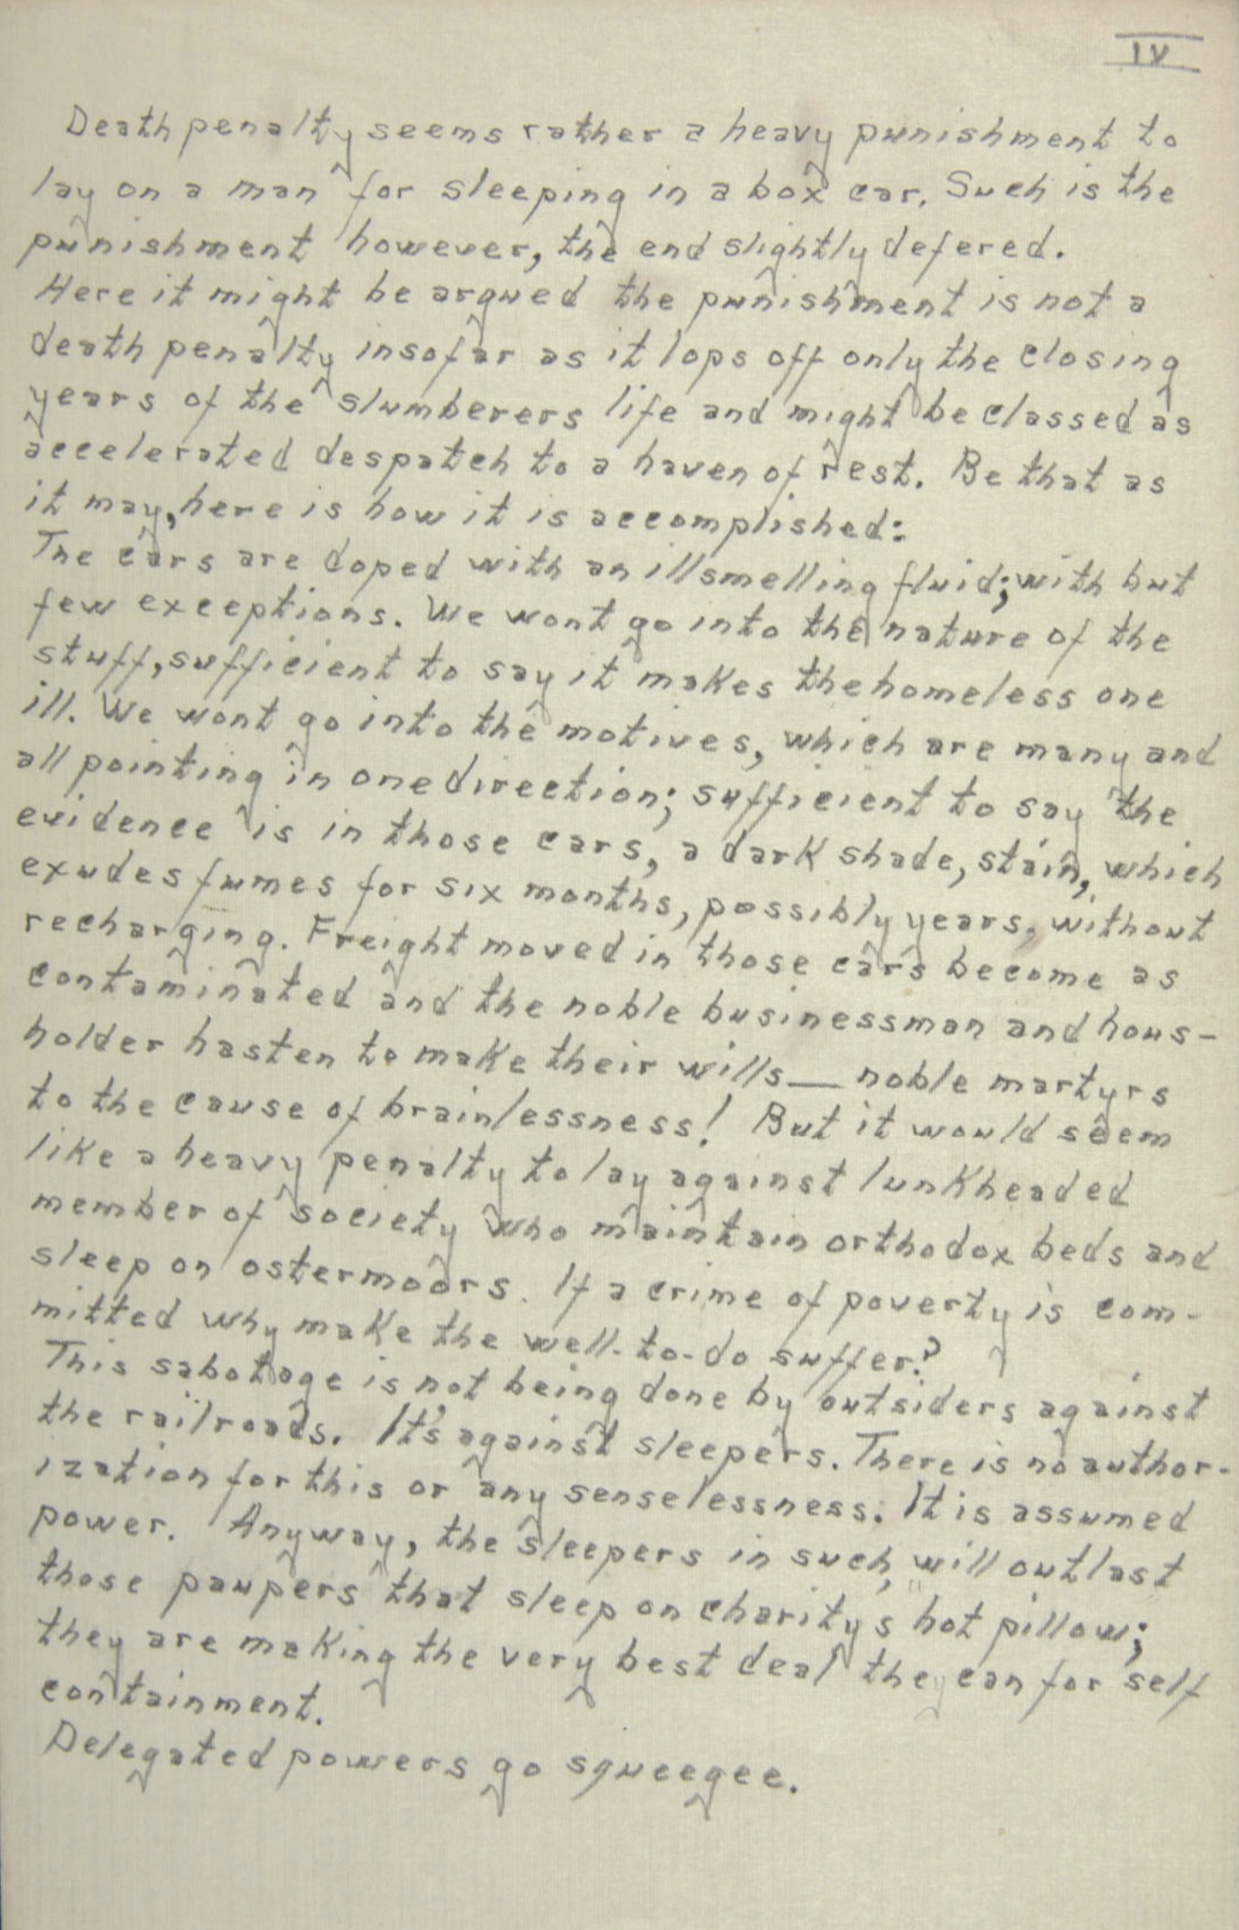 IV
Death penalty seems rather a heavy punishment to
lay on a man for sleeping in a box car. Such is the
punishment however, the end slightly defered.
Here it might be argued the punishment is not a
death penalty insofar as it lops off only the closing
years of the slumberers life and might be classed as
accelerated despatch to a haven of rest. Be that as
it may, here is how it is accomplished:
The cars are doped with an illsmelling fluid; with but
few exceptions. We wont go into the nature of the
stuff, sufficient to say it makes the homeless one
ill. We wont go into the motives, which are many and
all pointing in one direction; sufficient to say the
evidence is in those cars, a dark shade, stain, which
exudes fumes for six months, possibly years, without
recharging. Freight moved in those cars become as
contaminated and the noble businessman and hous-
holder hasten to make their wills — noble martyrs
to the cause of brainlessness! But it would seem
like a heavy penalty to lay against lunkheaded
member of society who maintain orthodox beds and
sleep on ostermoors. If a crime of poverty is com-
mitted why make the well-to-do suffer?
This sabotage is not being done by outsiders against
the railroads. It's against sleepers. There is no author-
ization for this or any senselessness. It is assumed
power. Anyway, the sleepers in such will outlast
those paupers that sleep on charity's hot pillow;
they are making the very best deal they can for self
containment.
Delegated powers go squeegee.